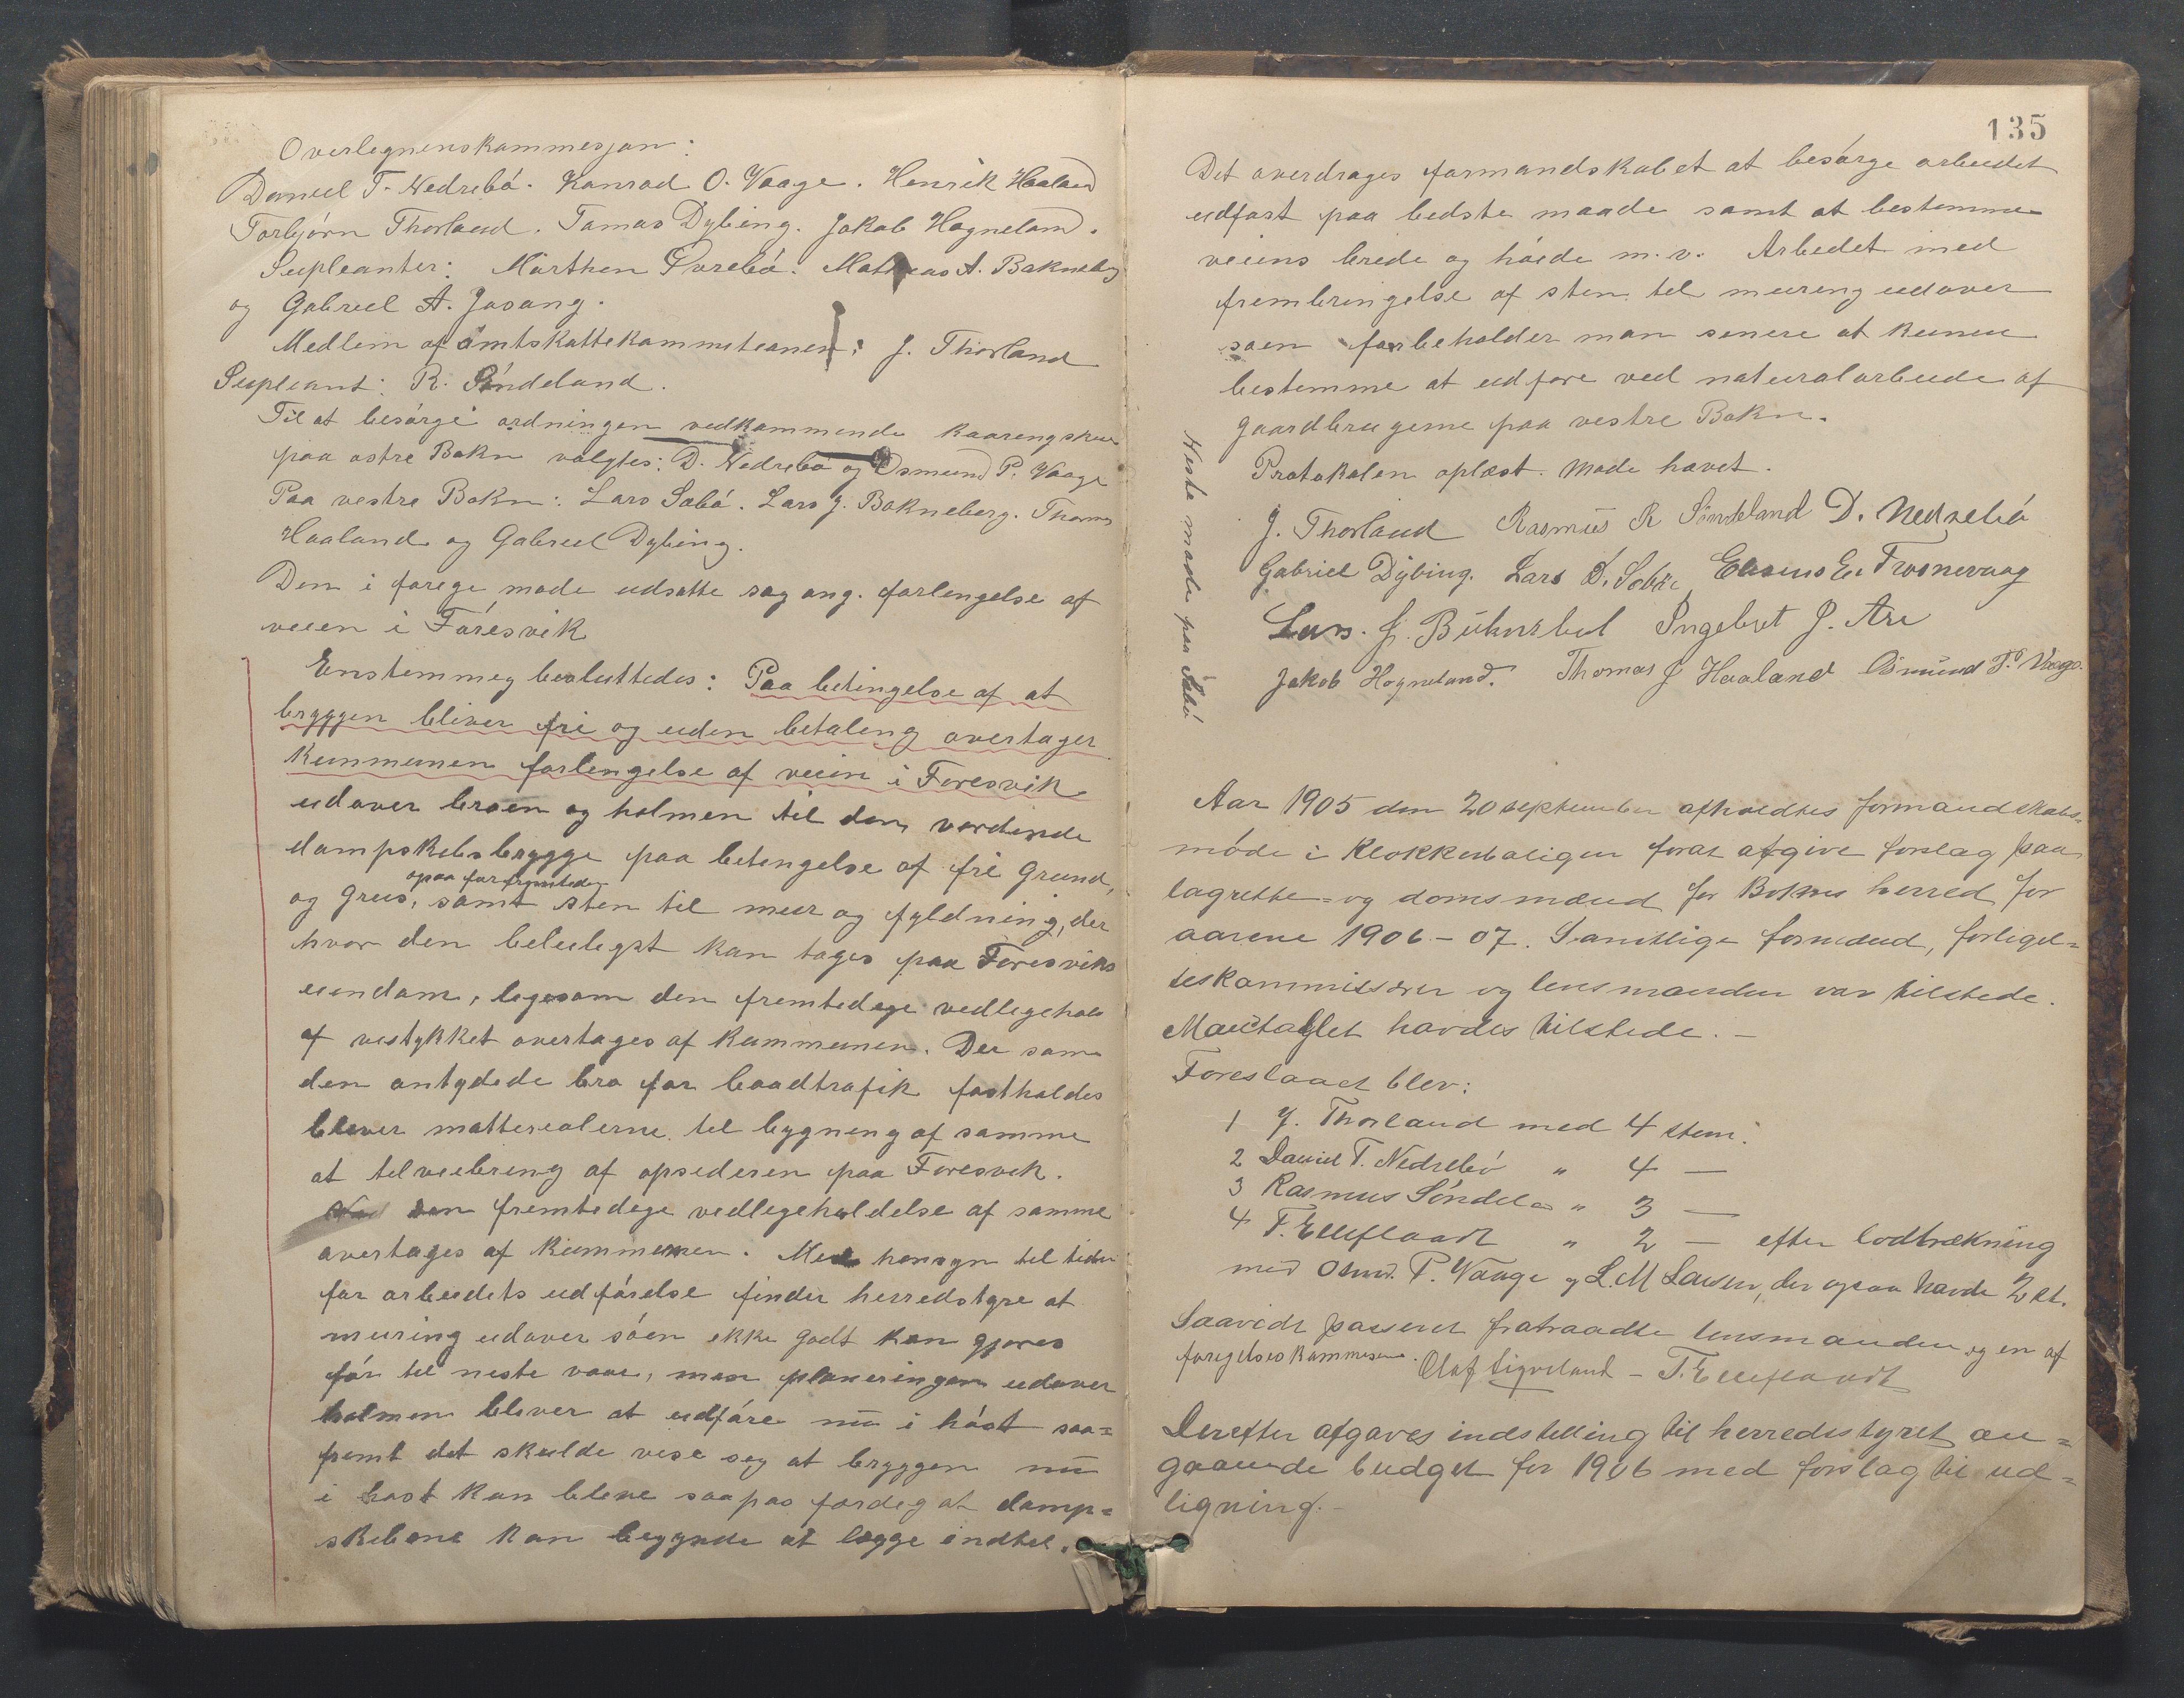 Overlegnenskommesjon:
Daniel T. Nedrebó. Konrad O. Vaage. Henrik Haaland
Torbjørn Thorland. Tomas Dybing. Jakob Hogneland.
Supleanter: Mårthen Òvrebó. Mathias A. Bakneberg
og Gabriel A. Jøsang.
Medlem af amtskattekommiteanen: J. Thorland
Supleant: R. Söndeland.
Til at besórge ordningen vedkommende kaarengskuer
paa østre Bokn valgtes: D. Nedrebó og Osmund P. Vaage
Paa vestre Bokn: Lars Sabó. Lars J. Bokneberg. Thomas
Haaland og Gabriel Dybing.
Den i forege møde udsatte sag ang. forlengelse af
veien i Fóresvik
Enstemmeg besluttedes: Paa betingelse af at
bryggen bliver fri og uden betaleng overtager
kummunen forlengelse af veien i Foresvik
udover broen og holmen til den vordende
dampskibsbrygge paa betengelse af fri grund,
opaa for fremteden
og grus, samt sten til mur og fyldning, der
hvor den beleilegst kan tages paa Foresviks
eiendom, legesom den fremtedege vedlegehold
af vestykket overtages af kummunen. Der som
den antydede bro for baadtrafik fastholdes
blever matterealerne tel bygneng af samme
at telveiebreng af opsederen paa Foresvek.
den fremtedege vedlegeholdelse af samme
overtages af kummunen. Med hensyn tel teden
for arbeidets udfórelse finder herredstyre at
muring udover sóen ikke godt kan gjøres
fór tel neste vaar, men planeringen udover
holmen blever at udfóre nu i hóst saa=
fremt det skulde vise seg at bryggen nu
i høst kan bleve saapas ferdeg at damp=
skibene kan begynde at lægge indtel.
135
Det overdrages formandskabet at besórge arbeidet
udført paa bedste maade samt at bestemme
veiens brede og hóide m.v. Arbedet med
frembringelse af sten tel mureng udover
søen forbeholder man senere at kunne
bestemme at udføre ved naturalarbeide af
gaardbrugerne paa vestre Bokn.
Protokolen oplæst. Møde hævet.
Neste møde paa Sabó
J. Thorland Rasmus R Söndeland D. Nedrebó
Gabriel Dybing. Lars O. Sabó, Elesius E. Trosnevaag
Lars. J. Ingebret J. Are
Jakob Hogneland. Thomas J Haaland Osmund P. Vaage.
Aar 1905 den 20 september afholdtes formandskabs=
móde i Klokkerboligen forat afgive forslag paa
lagrette= og domsmænd for Bokns herred for
aarene 1906 - 07. Samtlige formænd, forligel=
seskommissærer og lensmanden var tilstede.
Mantallet havdes tilstede. -
Foreslaaet blev:
1 J. Thorland med 4 stem.
2 Daniel T. Nedrebó " 4 —
3 Rasmus Söndela " 3 —
4 T. Elleflaadt " 2 — efter lodtrækning
med Osmd. P. Vaage og L. M Larsen, der ogsaa havde 2 st.
Saavidt passeret fratraadte lensmanden og en af
foregelseskommesene. Olaf Sigveland - T. Elleflaadt
Derefter afgaves indstilling til herredsstyret an=
gaaende budget for 1906 med forslag til ud=
ligning. -